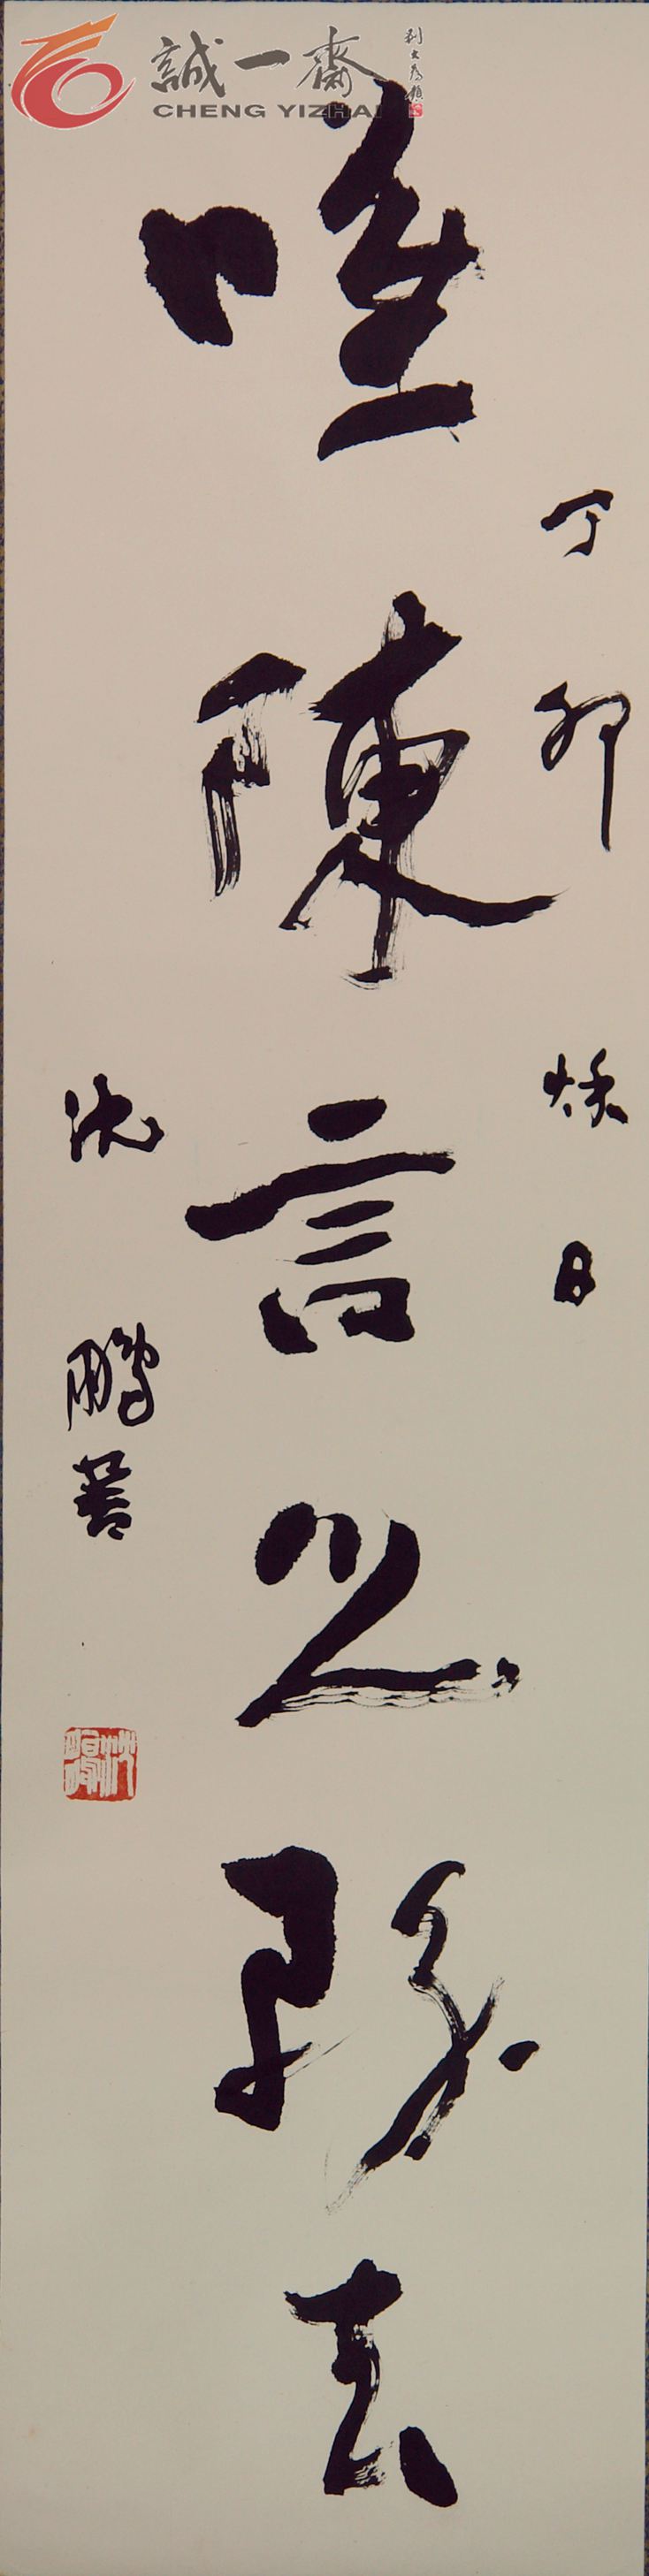 誠一齋
CHENG YIZHAI
丁卯 秋日
唯陳言之務去
沈鵬書